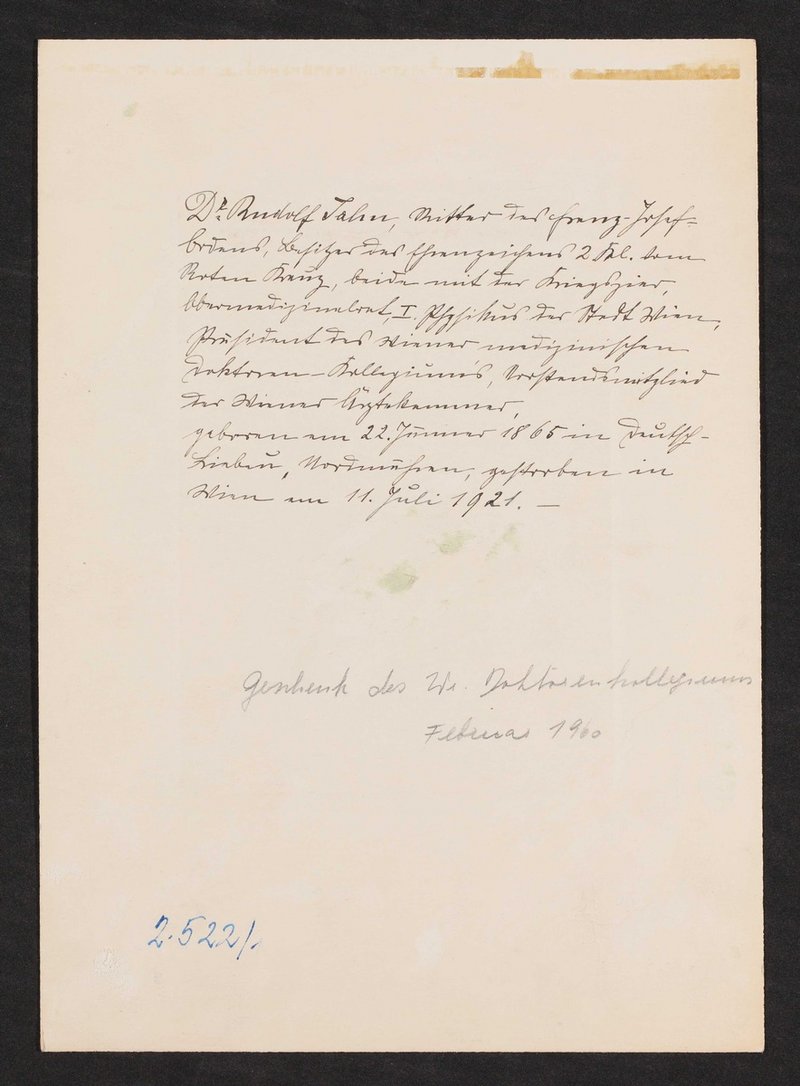 Dr. Rudolf Jahn, Ritter des Franz-Josef-
Ordens, Besitzer des Ehrenzeichens 2. Kl. vom
Roten Kreuz, beide mit der Kriegszier,
Obermedizinalrat, I. Physikus der Stadt Wien,
Präsident des Wiener medizinischen
Doktoren-Kollegiums, Vorstandsmitglied
der Wiener Ärztekammer,
geboren am 22. Jänner 1865 in Deutsch-
Liebau, Nordmähren, gestorben in
Wien am 11. Juli 1921. —
Geschenk des Wr. Doktorenkollegiums
Februar 1960
2.522/.